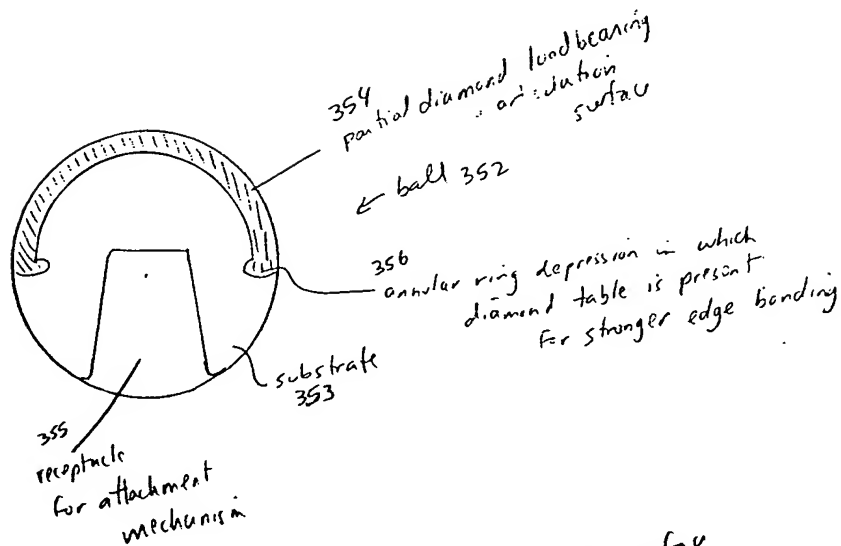 354
partial diamond load bearing
articulation
surface
ball 352
356
annular ring depression in which
diamond table is present
for stronger edge bonding
substrate
353
355
receptacle
for attachment
mechanism